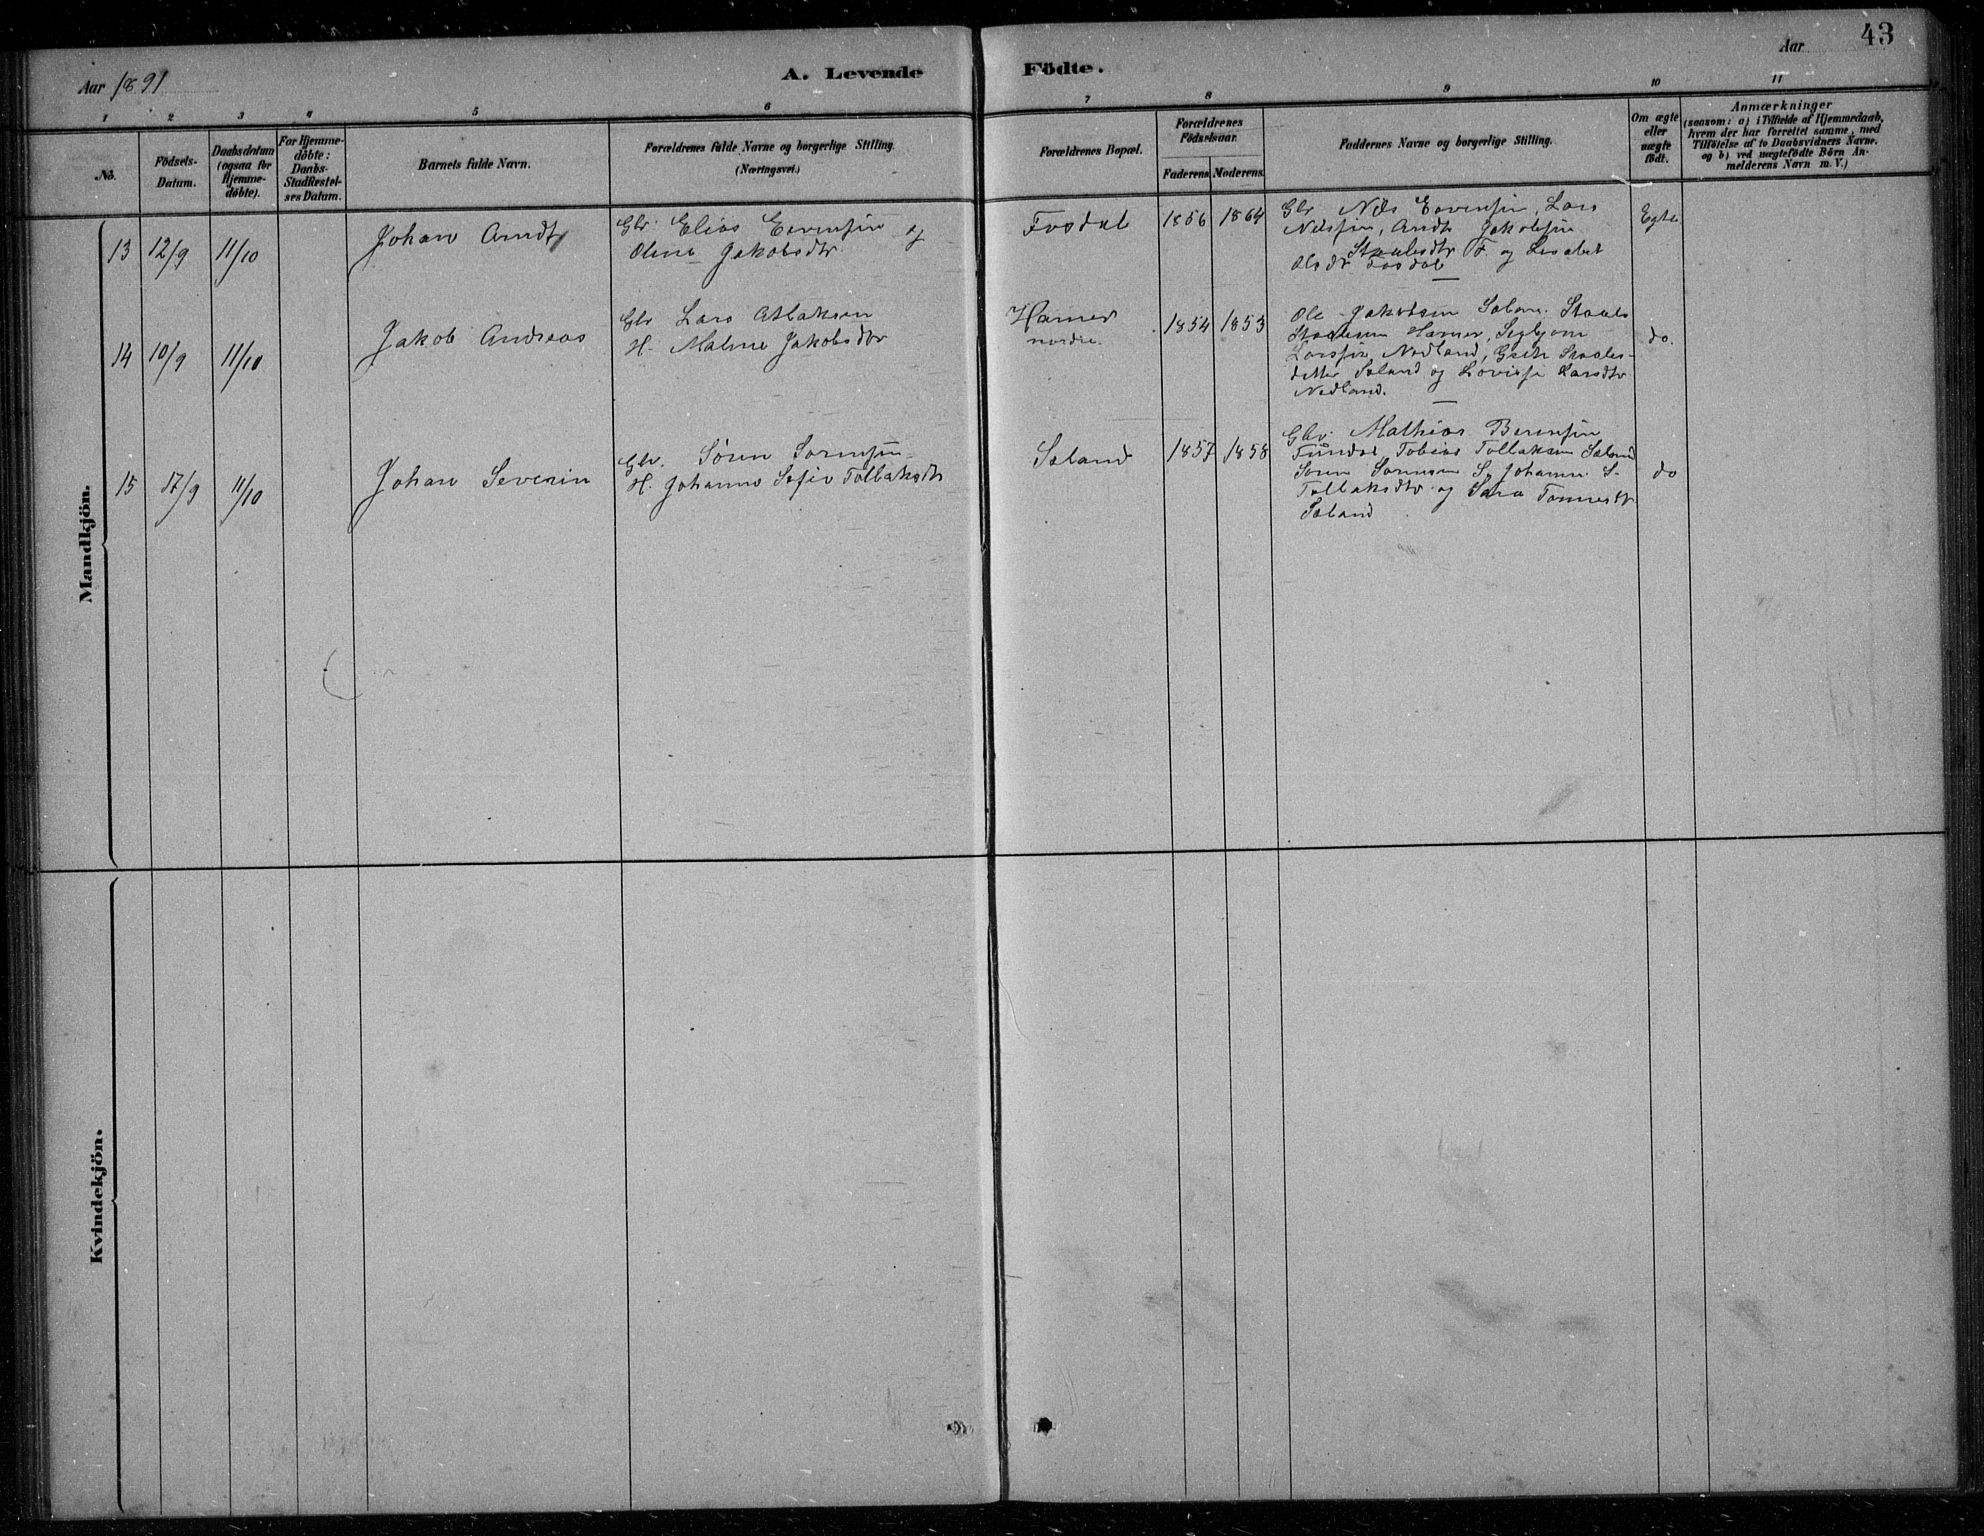 43
Aar 1891
A. Levende
Födte.
Aar
1 2 3 4 5 6 7 8 9 10 11
No.
Födsels-
Datum.
Daabsdatum
(ogsaa for
Hjemme-
döbte).
For Hjemme-
döbte:
Daabs-
Stadfestel-
ses Datum.
Barnets fulde Navn.
Forældrenes fulde Navne og borgerlige Stilling.
(Næringsvei.)
Forældrenes Bopæl.
Forældrenes
Födselsaar.
Faderens Moderens
Faddernes Navne og borgerlige Stilling.
Om ægte
eller
uægte
födt.
Anmærkninger
(saasom: a) i Tilfælde af Hjemmedaab,
hvem der har forrettet samme, med
Tilföielse af to Daabsvidners Navne,
og b) ved uægtefödte Börn An-
melderens Navn m. V.)
Mandkjön.
13 12/9 11/10
Johan Arndt
Gbr. Elias Evensen og
Olene Jakobsdtr
Fosdal
1856 1864
Gbr Nils Evensen, Lars
Nilssen, Arndt Jakobsen
Staalesdtr F. og Lisabet
Olsdtr Fosdal
Egte
14 10/9 11/10
Jakob Andreas
Gbr Lars Atlaksen
H. Malene Jakobsdtr
Hamer
nordre.
1854 1853
Ole Jakobsen Staale
Staalesen Hamer, Sigbjørn
Larssen Nedland, Staales-
datter Søland og Lovisse Larsdtr
Nedland.
do.
15 17/9 11/10
Johan Severin
Gbr. Søren Sørensen
H. Johanne Sofie Tollaksdtr
Søland
1857 1858
Gbr. Mathias Berensen
Tobias Tollaksen Søland
Søren Sørensen S. Johanne S.
Tollaksdtr og Sara Tønnesdtr
Søland
do
Kvindekjön.